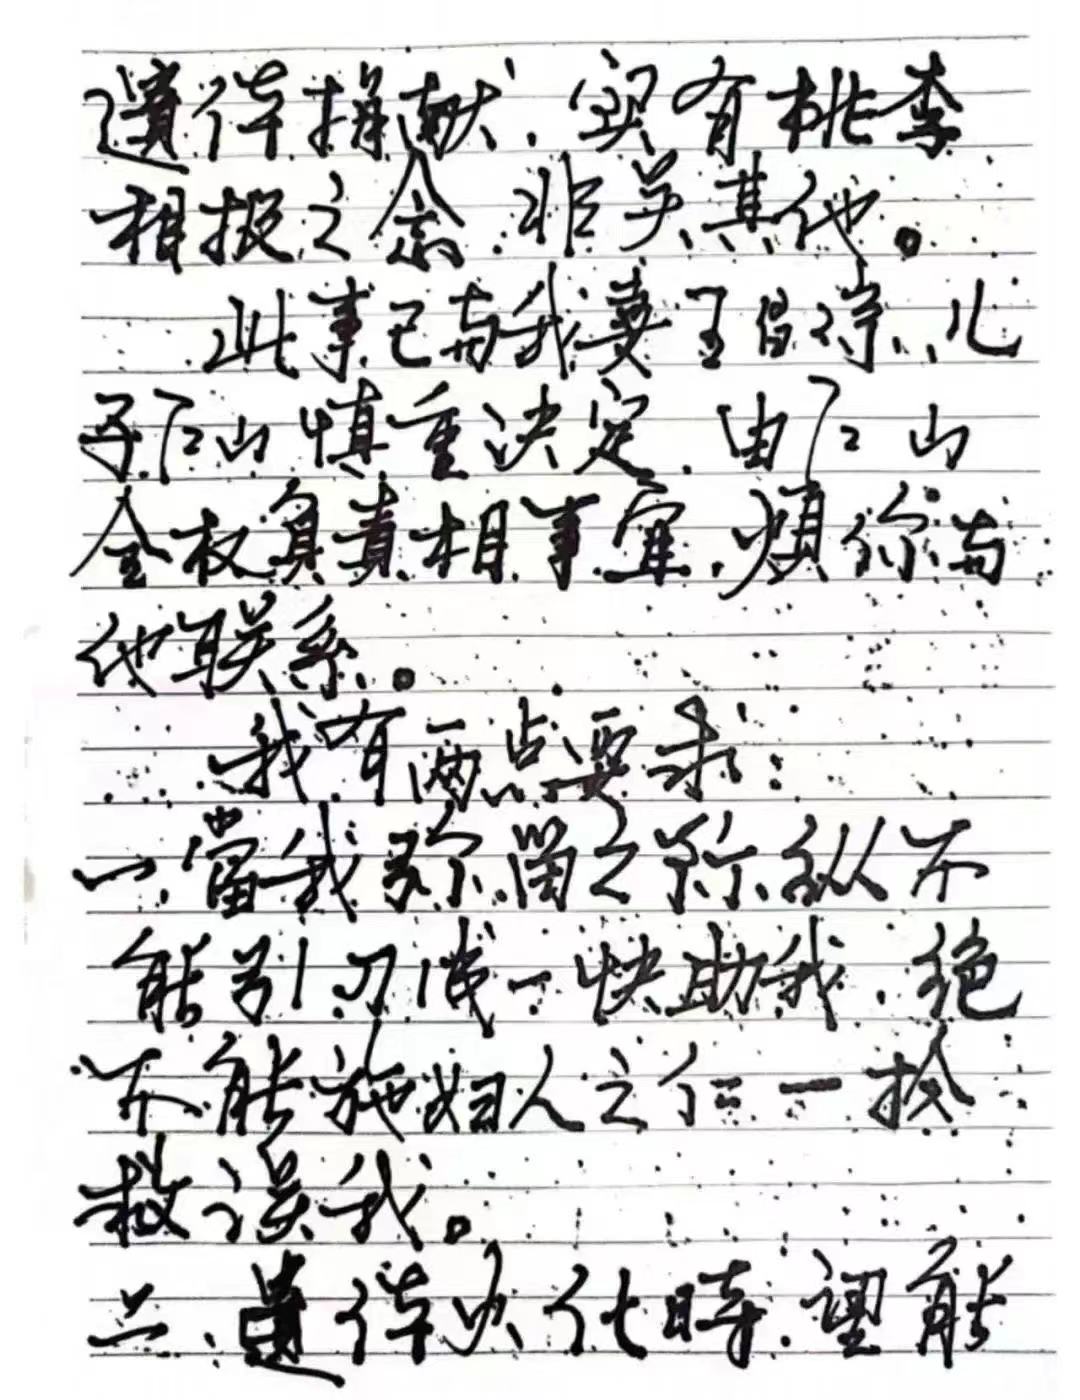 遗体捐献，实有桃李
相投之念，非关其他。
此事已与我妻王昌淙、儿
子仁山慎重决定，由仁山
全权负责相事宜，烦你与
他联系。
我有两点要求：
一、當我弥留之际，纵不
能引刀成一快助我，绝
不能施妇人之仁一抢
救误我。
二、遗体火化时，望能